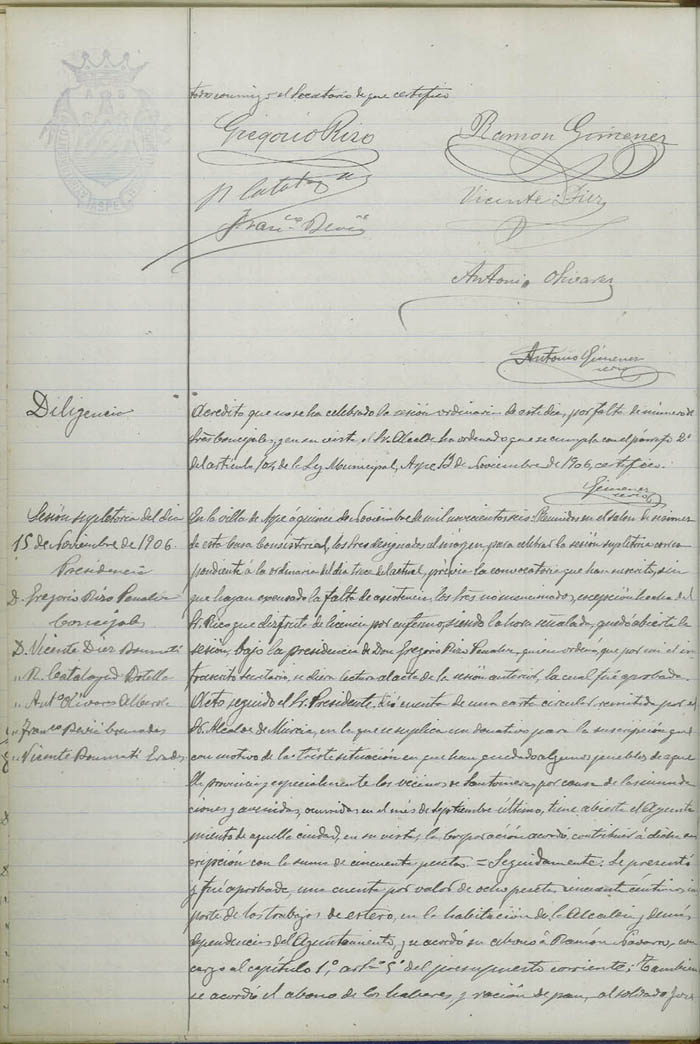 todo conmigo el Secretario de que certifico
Gregorio Rizo
Ramon Gimenez
R Catala
Vicente Diez
Franco
Antonio Olivares
Antonio Gimenez
Diligencia
Acredito que no se ha celebrado la sesión ordinaria de este día, por falta de número de
Sres Concejales, y en su vista el Sr. Alcalde ha ordenado que se cumpla con el párrafo 2º
del artículo 104 de la Ley Municipal, Aspe 13 de Noviembre de 1906, certifico.
Gimenez
Sesión supletoria del día
15 de Noviembre de 1906.
Presidencia
D. Gregorio Rizo Penalva
Concejales
D. Vicente Diez
" R. Catalayud Botella
" Antº Olivares Alberola
" Franco
" Vicente
En la villa de Aspe á quince de Noviembre de mil novecientos seis: Reunidos en el salon de sesiones
de esta Casa Consistorial, los Sres designados al márgen para celebrar la sesión supletoria corres
pondiente á la ordinaria del día trece del actual, prévia la convocatoria que han suscrito, sin
que hayan excusado la falta de asistencia los Sres no mencionados, excepción hecha del
Sr. Rico que disfruta de licencia por enfermo, siendo la hora señalada, quedó abierta la
sesión, bajo la presidencia de Don Gregorio Rizo Penalva, quien ordenó que por mi el in
frascrito Secretario, se diera lectura al acta de la sesión anterior, la cual fué aprobada.
Acto seguido el Sr. Presidente, dió cuenta de una carta circular, remitida por el
Sr. Alcalde de Murcia, en la que se suplica un donativo para la suscripción que
con motivo de la triste situación en que han quedado algunos pueblos de aque
lla provincia y especialmente los vecinos de Santomera, por causa de las inunda
ciones y avenidas, ocurridas en el mes de Septiembre último, tiene abierta el Ayunta
miento de aquella ciudad, en su vista, la Corporación acordó, contribuir á dicha sus
cripción con la suma de cincuenta pesetas = Seguidamente: Se presentó
y fué aprobada, una cuenta por valor de ocho pesetas cincuenta céntimos im
porte de los trabajos de estero, en la habitación de la Alcaldía y demás
dependencias del Ayuntamiento, y se acordó su abono á Ramón Navarro, con
cargo al capítulo 1º, artº 5º del presupuesto corriente; También
se acordó el abono de los haberes y ración de pan, al soldado